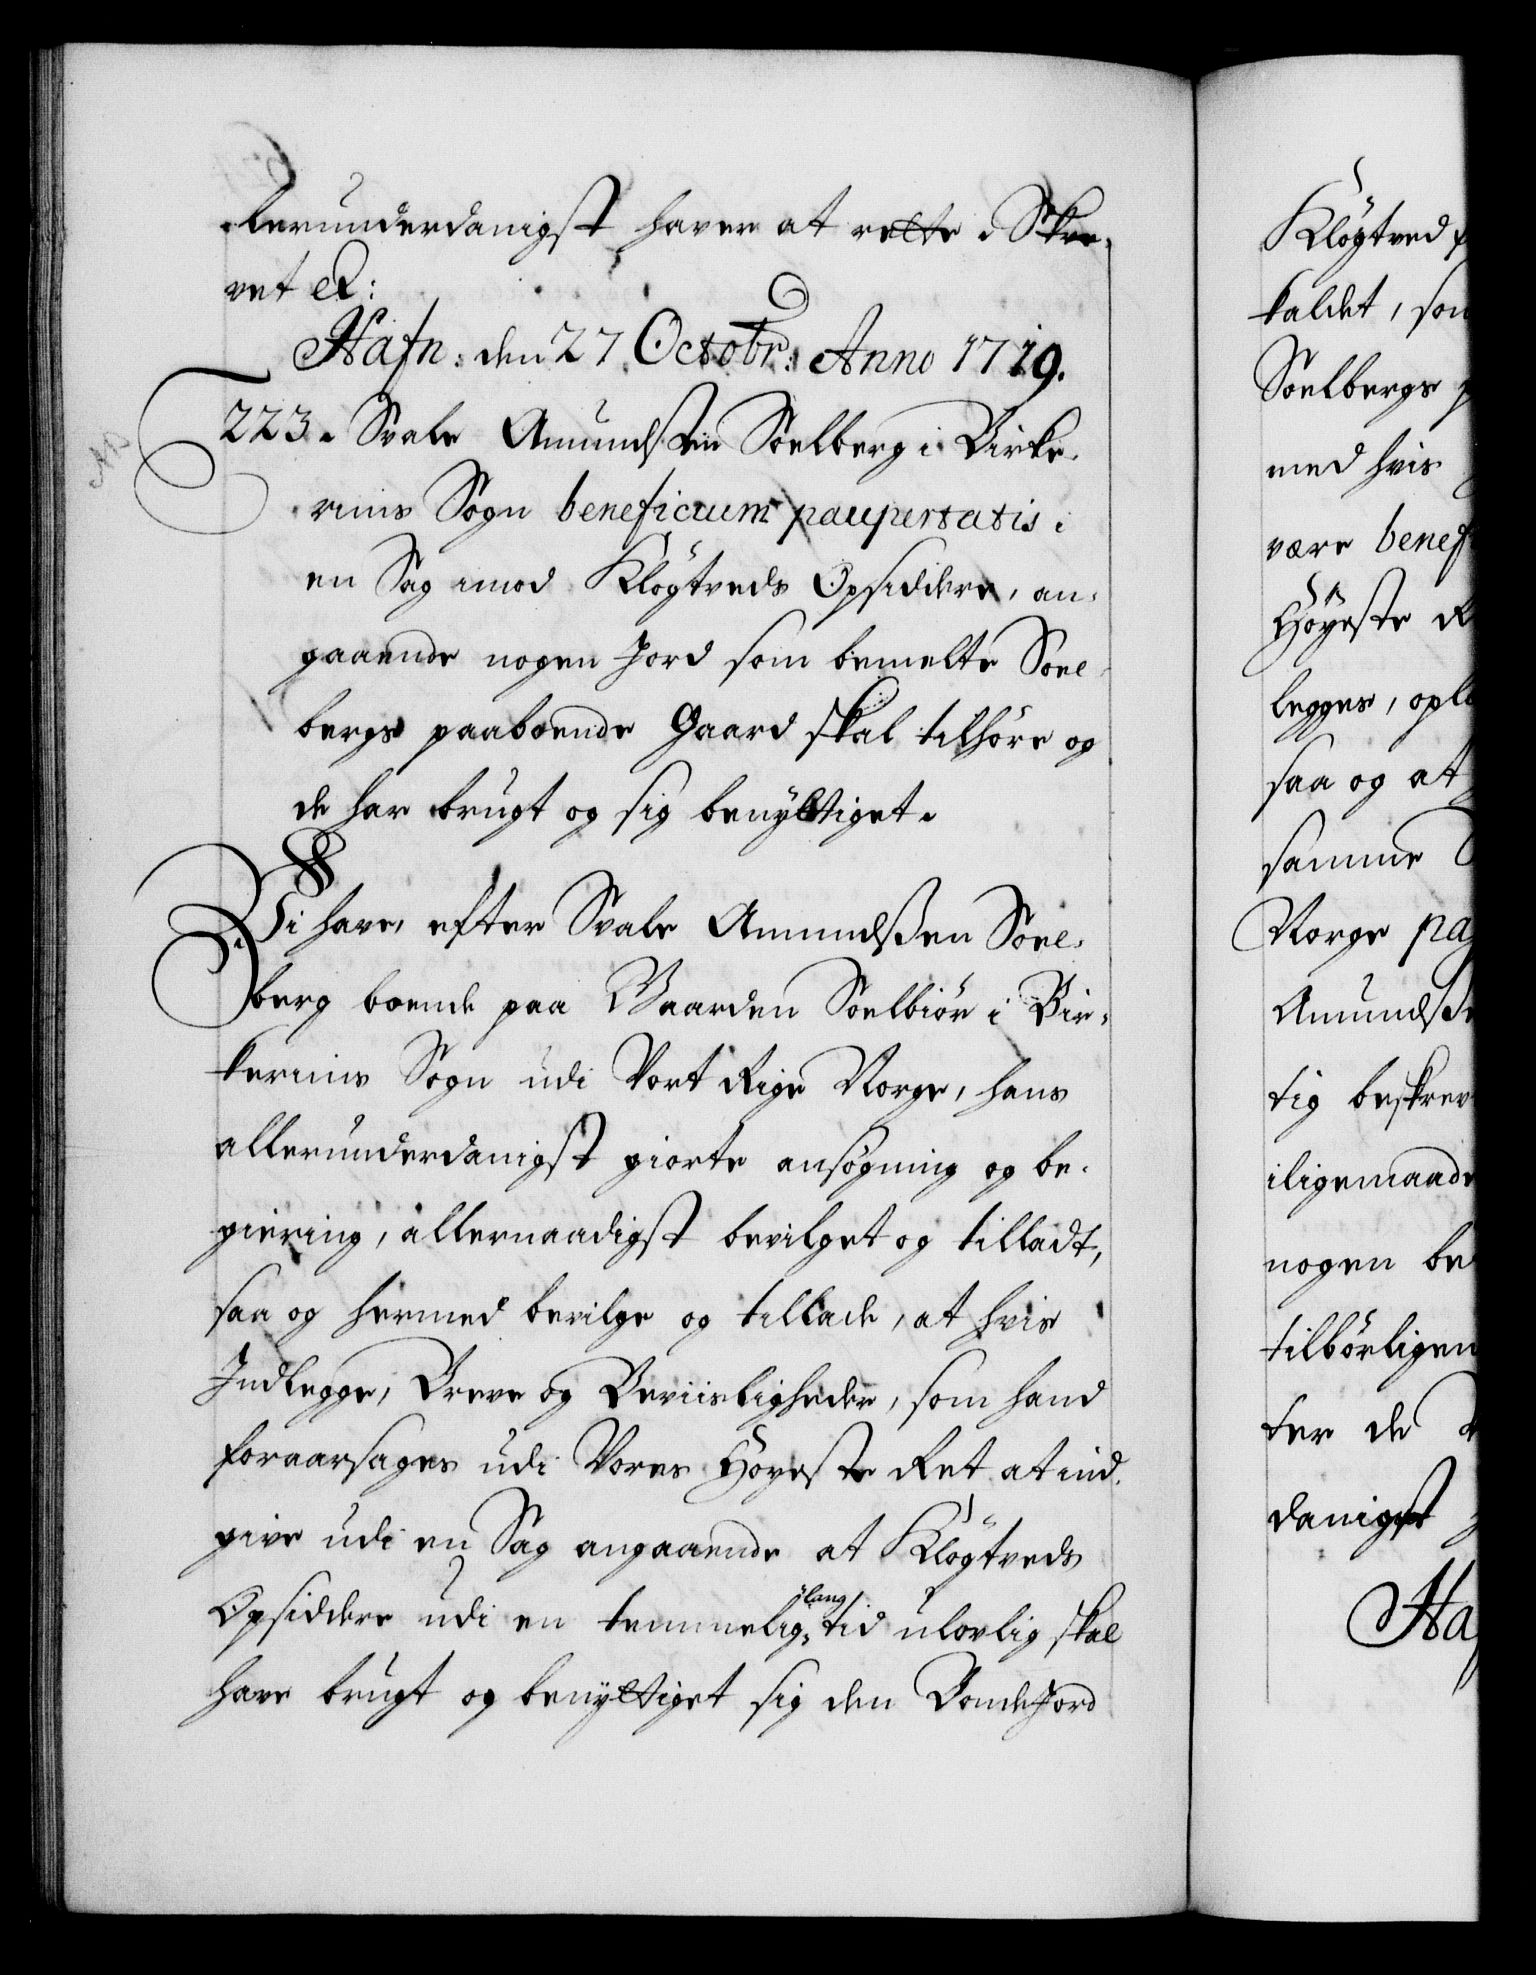 lerunderdanigst haver at rette. Skre-
vet &:
Hafn: den 27 Octobr: Anno 1719.
223. Svale Amundsen Soelberg i Birke-
rims Sogn beneficium paupertatis i
en Sag imod Kløgtveds Opsiddere, an-
gaaende nogen Jord som bemelte Soel-
bergs paaboende Gaard skal tilhøre og
de har brugt og sig benÿttiget.
Vi have, efter Svale Amundsßen Soel-
berg boende paa Gaarden Soelbiør i Bir-
kerims Sogn udi Vort Rige Norge, hans
allerunderdanigst giorte ansøgning og be-
giering, allernaadigst bevilget og tilladt,
saa og hermed bevilge og tillade, at hvis
Indlegge, Breve og Beviisligheder, som hand
foraarsages udi Vores Høyeste Ret at ind-
give udi en Sag angaaende at Kløgtveds
Opsiddere udi en temmelig lang tid ulovlig skal
have brugt og benÿttiget sig den Bondejord
Kløgtved
kaldet, som
Soelbergs
med hvis
være benef
Høÿeste R
legges, opl
saa og at
samme
Norge pa
Amundsße
tig beskrev
iligemaade
nogen be
tilbørligen
ter de
danigst
Ha